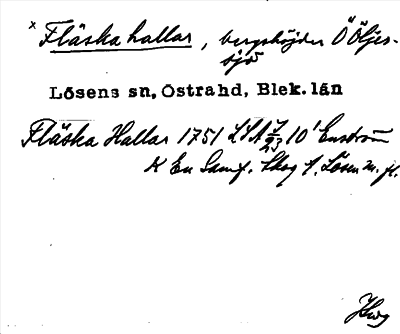 x Fläska hallar, bergshöjder Ö Öljes-
sjö
Lösens sn, Östra hd, Blek. län
Fläska Hallar 1751 LSA 10¹ Enström
K En Samf. Skog f. Lösen m. fl.